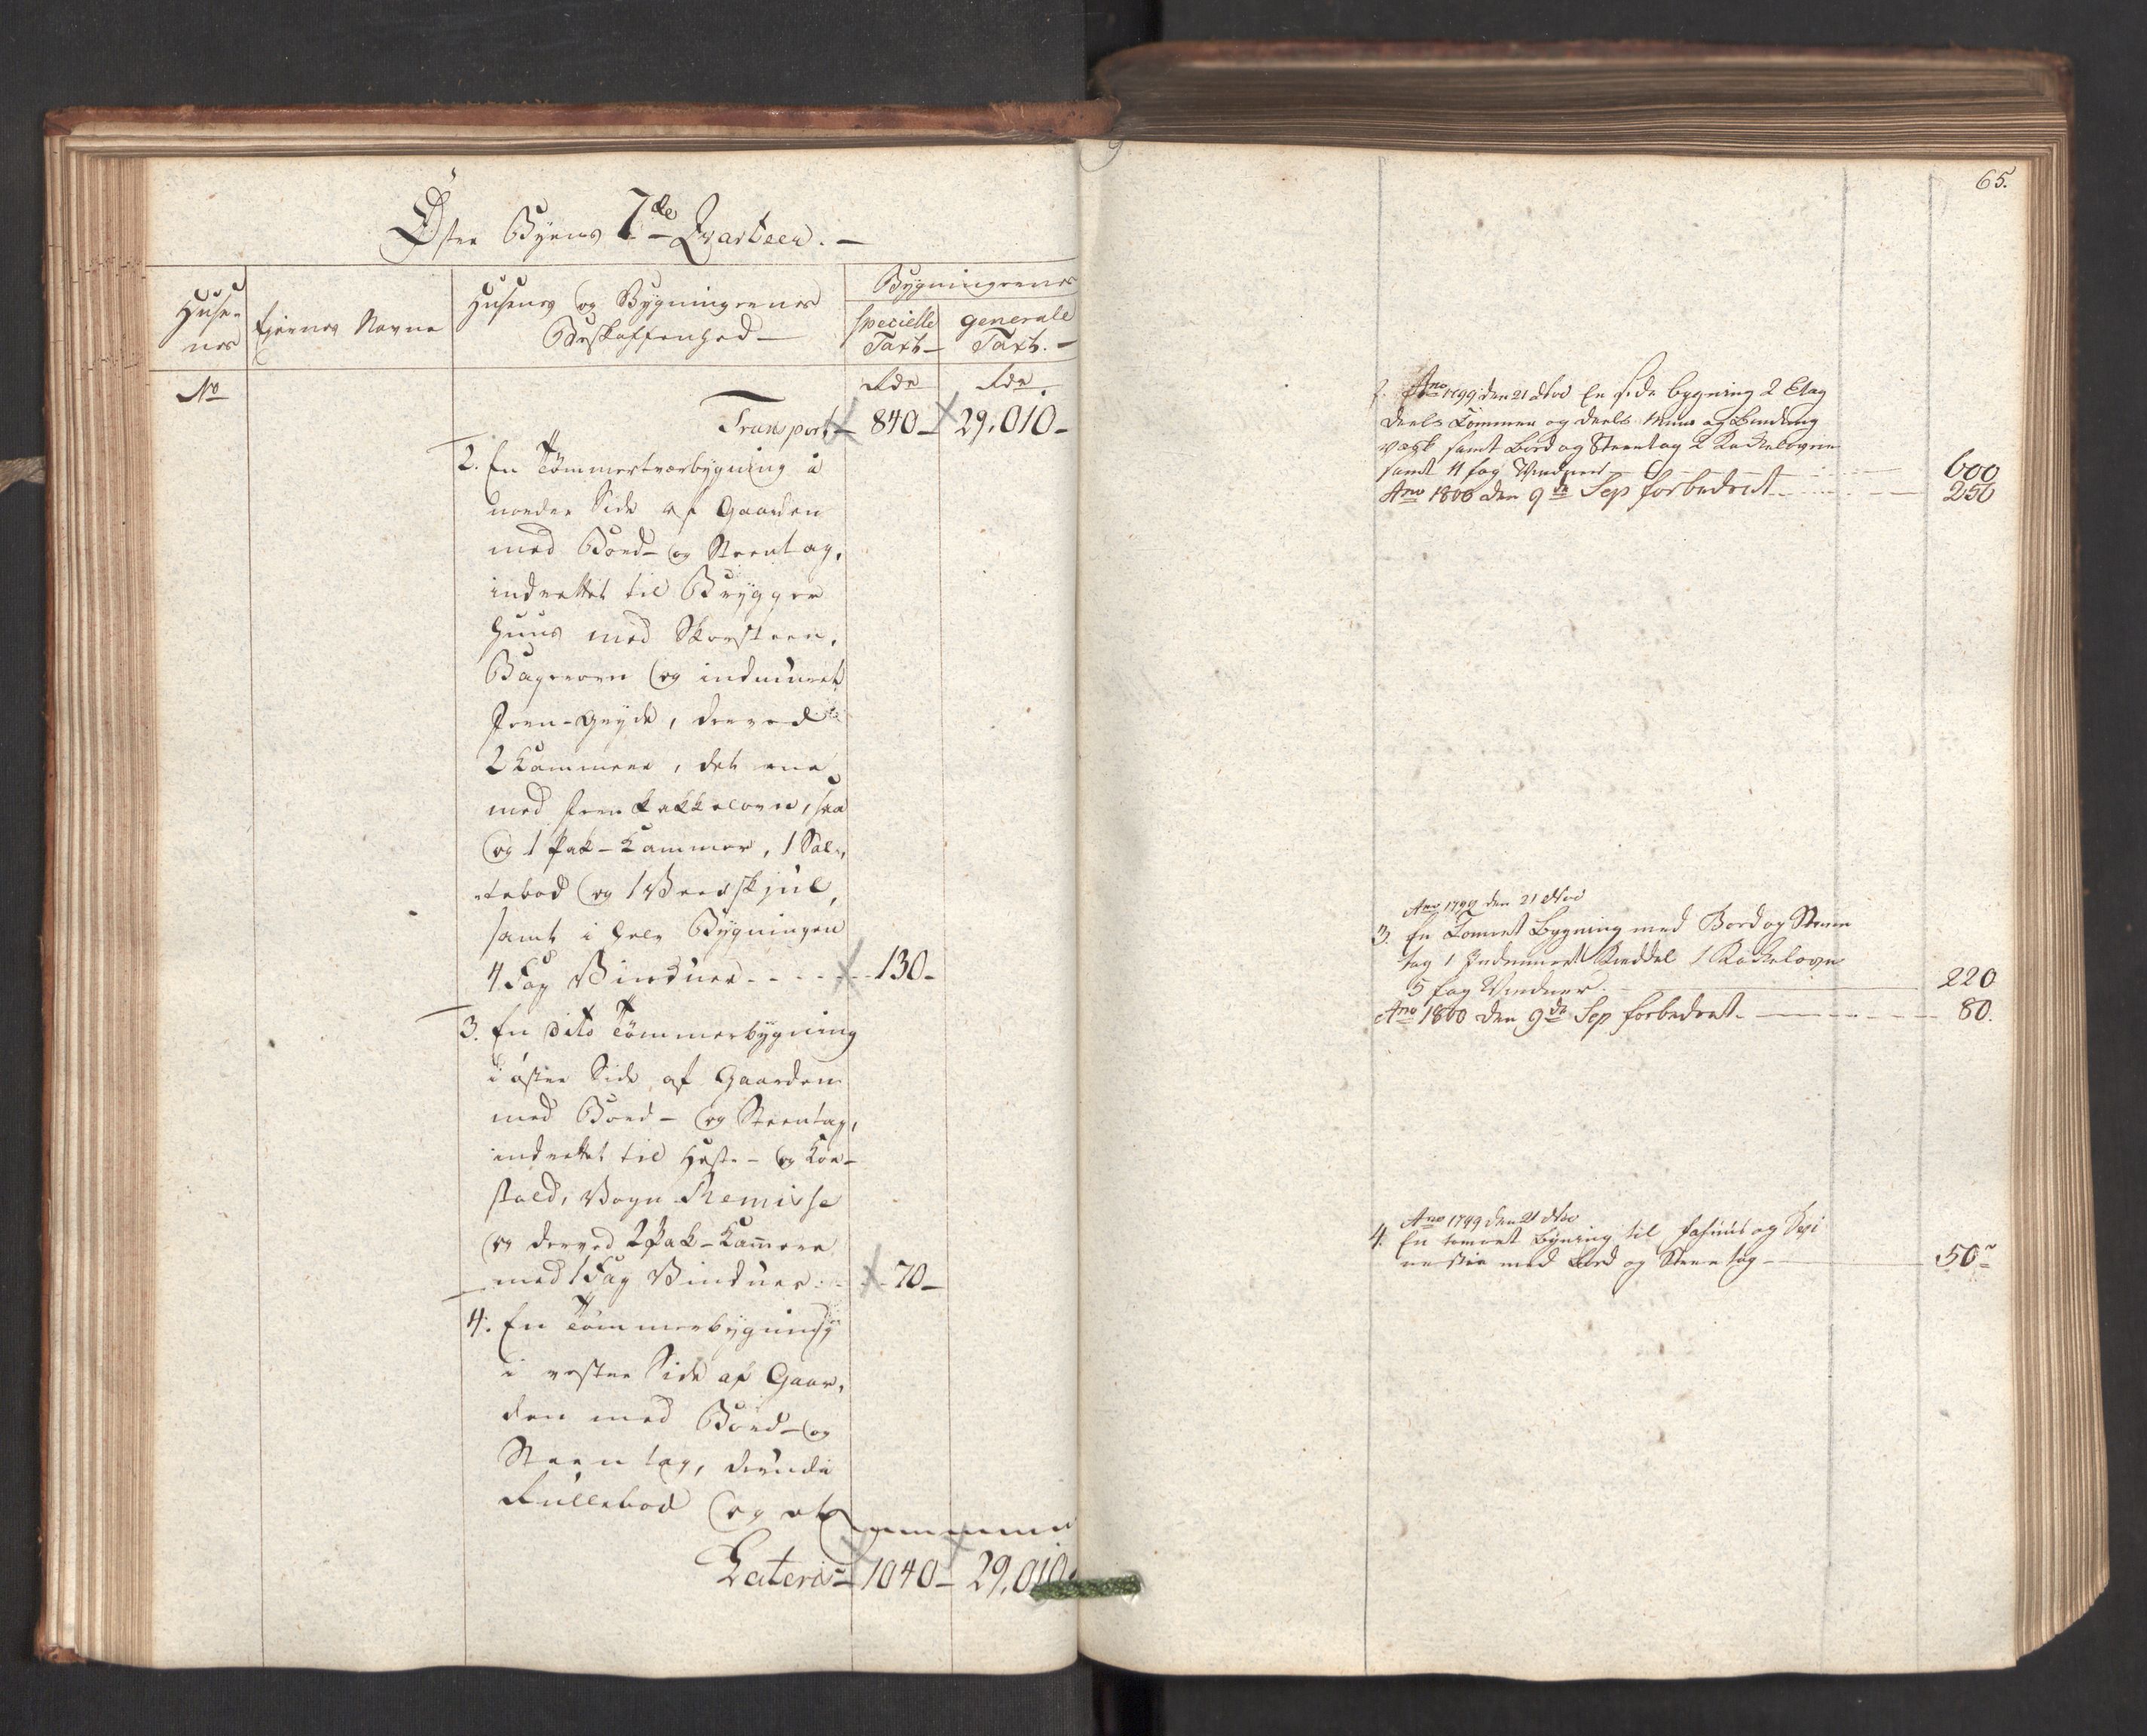 Øster Byens 7de Qvarteer.
Huse-
nes
Ejernes Navne
Husenes og Bygningernes
Beskaffenhed
Bygningernes
specielle
Taxt
generale
Taxt.
No
Rdr
Rdr
Transport 840 29,010
2. En Tømmertværbygning i
norder Side af Gaarden
med Bord- og Steentag,
indrettet til Brygger
huus med Skorsteen,
Bagerovn og indmuuret
Jern-Gryde, derved
2 Kammere, det ene
med Jern Kakkelovn, saa
og 1 Pak-Kammer, 1 Sal-
tebod og 1 Veedskjul,
samt i hele Bygningen
4 Fag Vinduer 130
3. En dito Tømmerbygning
i øster Side af Gaarden
med Bord- og Steentag,
indrettet til Heste- og Koe-
stald, Vogn Remisse
og derved 2 Pak-Kamere
med 1 Fag Vinduer 70
4. En Tømmerbygning
i vester Side af Gaar-
den med Bord- og
Steentag, derunder
Rullebod og et
Lateris 1040 29,010
65.
2. Ano 1799 den 21 Nov En side bygning 2 Etag
deels Tømmer og deels Muur og Binding
værk samt Bord og Steentag 2 Kackelovne
samt 11 fag Vinduer 600
Ano 1800 den 9de Sep forbedret 250
Ano 1799 den 21 Nov
3. En Tømret Bygning med Bord og Steen
tag 1 Indmuuret Kieddel 1 Kackelovn
5 fag Vinduer 220
Ano 1800 den 9de Sep forbedret 80.
Ano 1799 den 21 Nov
4. En tømret bygning til og Svi
ne stie med Bord og Steen tag 50